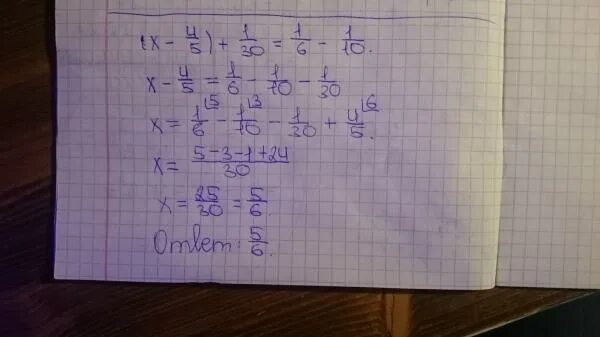 (x - 4/5) + 1/30 = 1/6 - 1/10.
x - 4/5 = 1/6 - 1/10 - 1/30
x = 1/6 ⌊5 - 1/10 ⌊3 - 1/30 + 4/5 ⌊6.
x = 5-3-1+24/30
x = 25/30 = 5/6.
Ответ: 5/6.